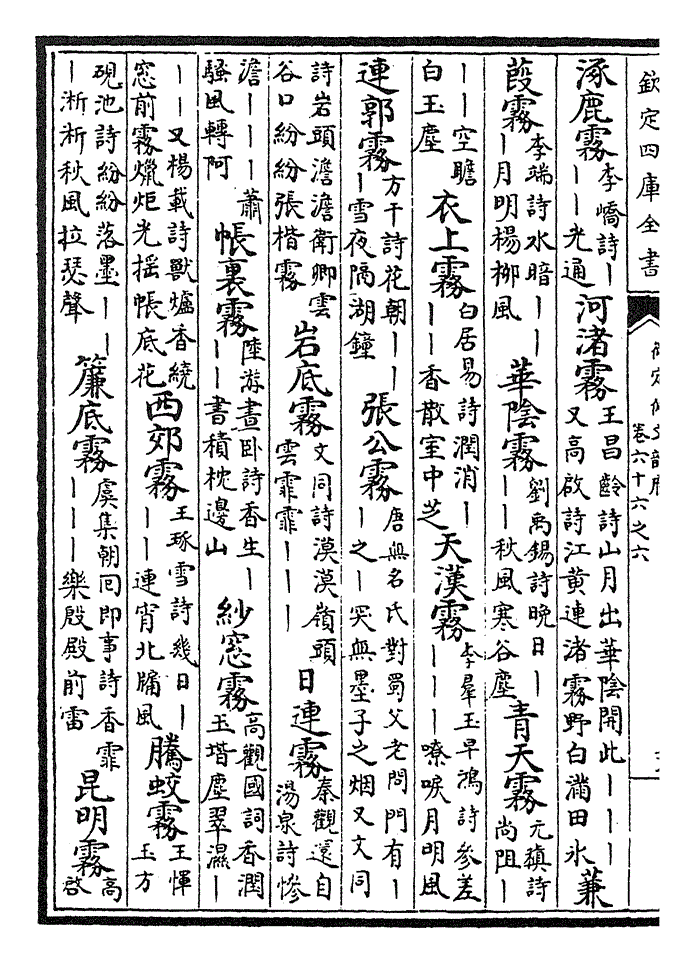 欽定四庫全書
御定佩文韻府
卷六十六之六
涿鹿霧李嶠詩丨丨丨光通河渚霧王昌齡詩山月出華陰開此丨丨丨又高啟詩江黄連渚霧野白滿田氷蒹
葭霧李端詩水暗丨丨丨月明楊柳風華陰霧劉禹錫詩晚日丨丨丨秋風寒谷塵青天霧元稹詩尚阻丨
丨丨空瞻白玉塵衣上霧白居易詩潤消丨丨丨香散室中芝天漢霧李羣玉早鴻詩參差丨丨丨嘹唳月明風
連郭霧方干詩花朝丨丨丨雪夜隔湖鐘張公霧唐無名氏對蜀父老問門有丨丨之丨突無墨子之烟又文同
詩岩頭澹澹衛卿雲谷口紛紛張楷霧岩底霧文同詩漠漠嶺頭雲霏霏丨丨丨日連霧秦觀還自湯泉詩慘
澹丨丨丨蕭騷風轉阿帳裏霧陸游晝卧詩香生丨丨丨書積枕邊山紗窓霧高觀國詞香潤玉堦塵翠濕丨
丨丨又楊載詩獸爐香繞窓前霧爉炬光揺帳底花西郊霧王琢雪詩幾日丨丨丨連宵北牖風騰蛟霧王惲玉方
硯池詩紛紛落墨丨丨丨淅淅秋風拉瑟聲簾底霧虞集朝囘即事詩香霏丨丨丨樂殷殿前雷昆明霧高啓